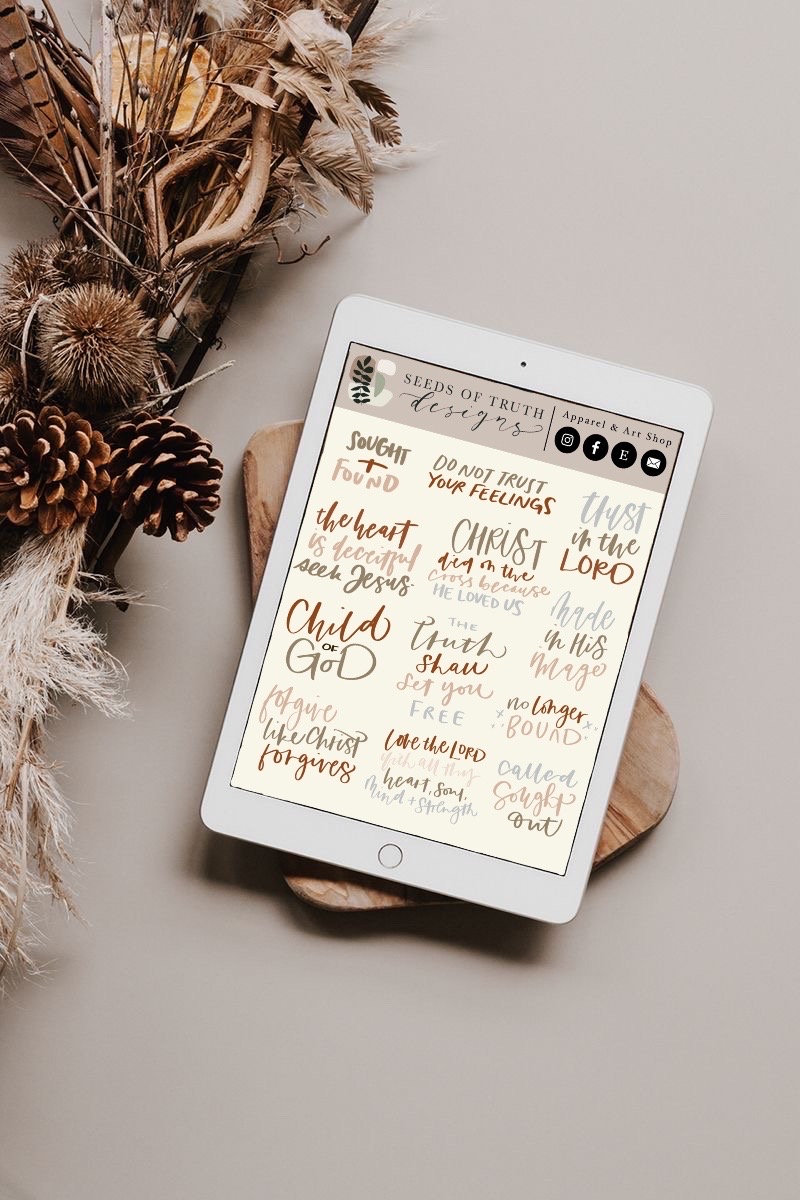 SEEDS OF TRUTH
designs
Apparel & Art Shop
E
SOUGHT
+
FOUND
DO NOT TRUST
YOUR FEELINGS
trust
in the
LORD
the heart
is deceitful
seek Jesus
CHRIST
died on the
Cross because
HE LOVED US
made
in His
image
Child
OF
GOD
THE
Truth
Shall
Set you
FREE
no longer
BOUND
forgive
like Christ
forgives
Love the LORD
with all thy
heart, soul,
Mind + Strength
called
Sought
out